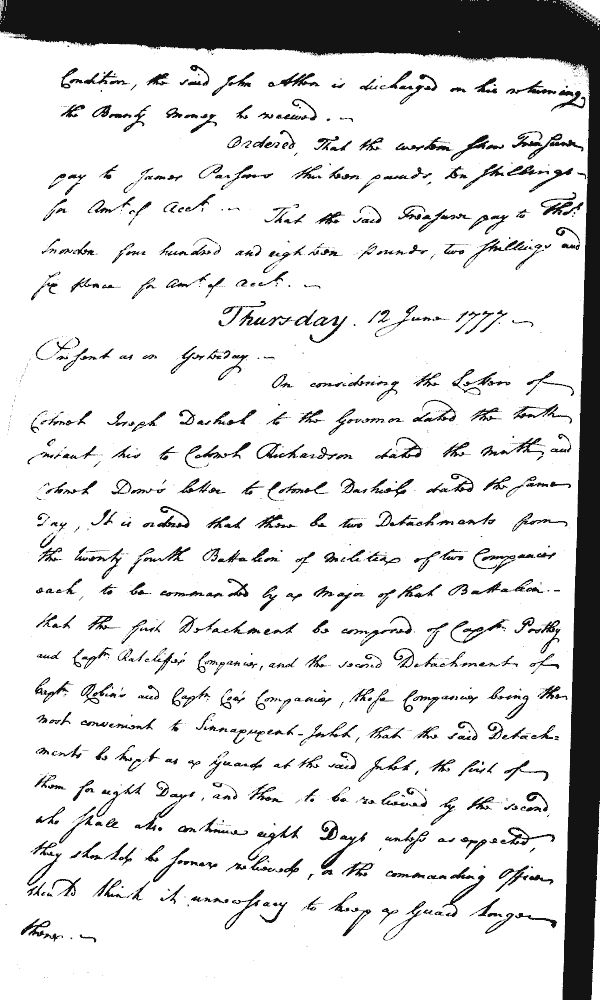 Condition, the said John Allen is discharged on his returning
the Bounty Money he received. —
Ordered, That the western Shore Treasurer
pay to James Parsons thirteen pounds, ten Shillings
for Amt. of Acct. — That the said Treasurer pay to Thos.
Snowden four hundred and eighteen Pounds, two Shillings and
Six Pence for Amt. of Acct. —
Thursday. 12 June 1777. —
Present as on Yesterday. —
On considering the Letters of
Colonel Joseph Dashiel to the Governor dated the tenth
instant, his to Colonel Richardson dated the ninth, and
Colonel Done's letter to Colonel Dashiel dated the same
Day, It is ordered that there be two Detachments from
the twenty fourth Battalion of Militia of two Companies
each, to be commanded by a Major of that Battalion. —
that the first Detachment be composed of Capt. Postley
and Capt. Ratcliffe's Companies, and the second Detachment of
Capt. Robin's and Capt. Cox's Companies, these Companies being the
most convenient to Sinnapuxent-Inlet, that the said Detach=
ments be kept as a Guard at the said Inlet, the first of
them for eight Days, and then to be relieved by the second,
who shall also continue eight Days unless as expected,
they should be sooner relieved, or the commanding Officer
should think it unnecessary to keep a Guard longer
there. —